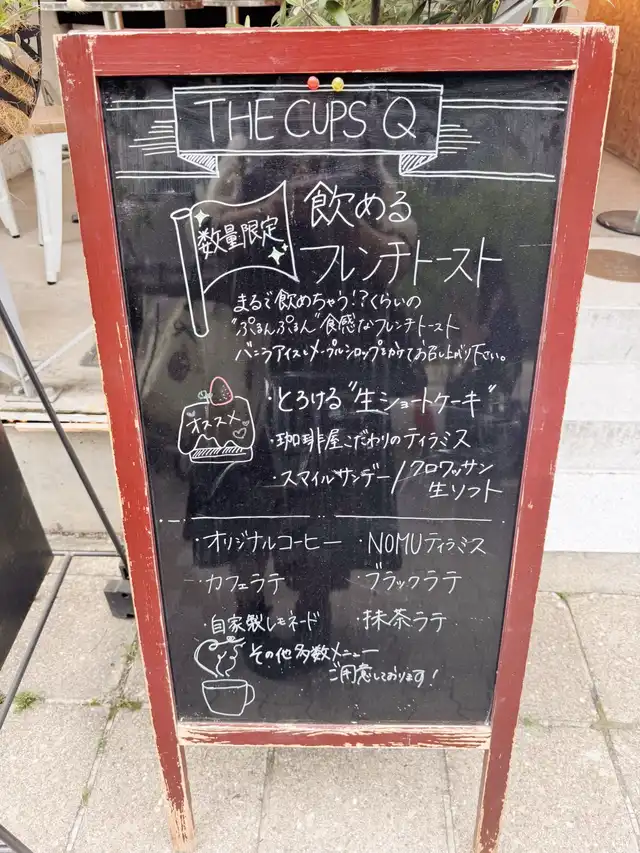 THE CUPS Q
数量限定
飲める
フレンチトースト
まるで飲めちゃう!?くらいの
"ぷるんぷるん"食感なフレンチトースト
バニラアイスとメープルシロップをかけてお召し上がり下さい。
オススメ
・とろける"生ショートケーキ"
・珈琲屋こだわりのティラミス
・スマイルサンデー/クロワッサン
生ソフト
・オリジナルコーヒー ・NOMUティラミス
・カフェラテ ・ブラックラテ
・自家製レモネード ・抹茶ラテ
その他多数メニュー
ご用意しております!